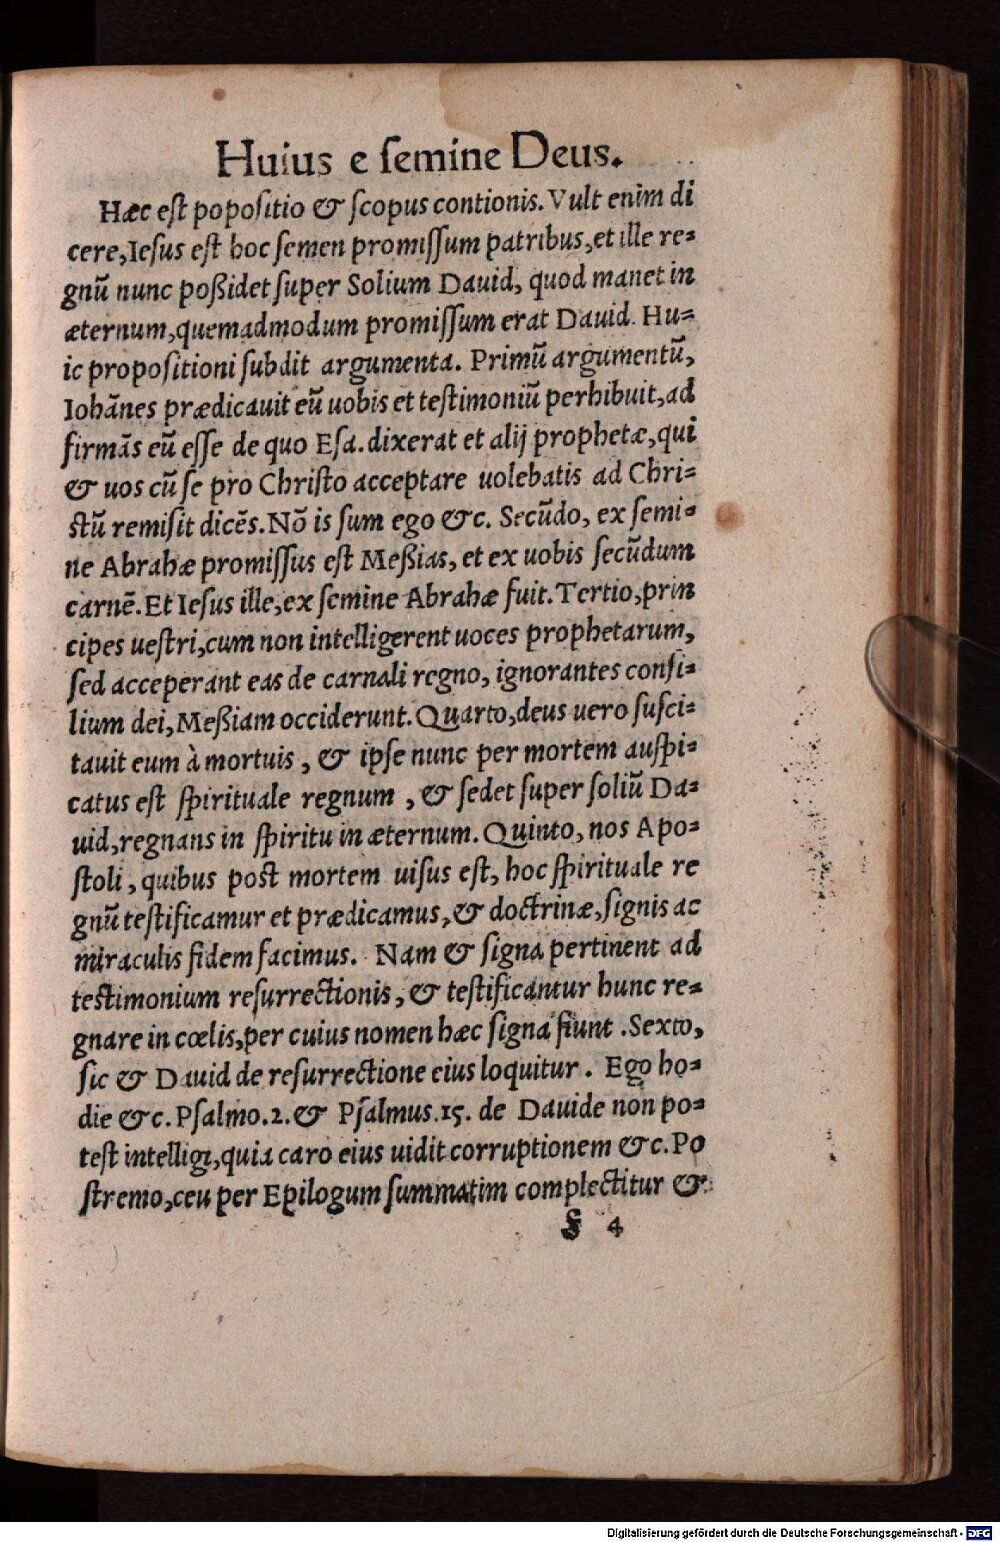 Huius e semine Deus.
Hæc est popositio & scopus contionis. Vult enim di
cere, Iesus est hoc semen promissum patribus, et ille re=
gnū nunc poßidet super Solium Dauid, quod manet in
æternum, quemadmodum promissum erat Dauid. Hu=
ic propositioni subdit argumenta. Primū argumentū,
Iohānes prædicauit eū uobis et testimoniū perhibuit, ad
firmās eū esse de quo Esa. dixerat et alij prophetæ, qui
& uos cū se pro Christo acceptare uolebatis ad Chri=
stū remisit dicēs. Nō is sum ego &c. Secūdo, ex semi=
ne Abrahæ promissus est Meßias, et ex uobis secūdum
carnē. Et Iesus ille, ex semine Abrahæ fuit. Tertio, prin
cipes uestri, cum non intelligerent uoces prophetarum,
sed acceperant eas de carnali regno, ignorantes consi=
lium dei, Meßiam occiderunt. Quarto, deus uero susci=
tauit eum à mortuis, & ipse nunc per mortem auspi=
catus est spirituale regnum, & sedet super soliū Da=
uid, regnans in spiritu in æternum. Quinto, nos Apo=
stoli, quibus post mortem uisus est, hoc spirituale re
gnū testificamur et prædicamus, & doctrinæ, signis ac
miraculis fidem facimus. Nam & signa pertinent ad
testimonium resurrectionis, & testificantur hunc re=
gnare in cœlis, per cuius nomen hæc signa fiunt. Sexto,
sic & Dauid de resurrectione eius loquitur. Ego ho=
die &c. Psalmo.2. & Psalmus.15. de Dauide non po=
test intelligi, quia caro eius uidit corruptionem &c. Po
stremo, ceu per Epilogum summatim complectitur &
§ 4
Digitalisierung gefördert durch die Deutsche Forschungsgemeinschaft - DFG